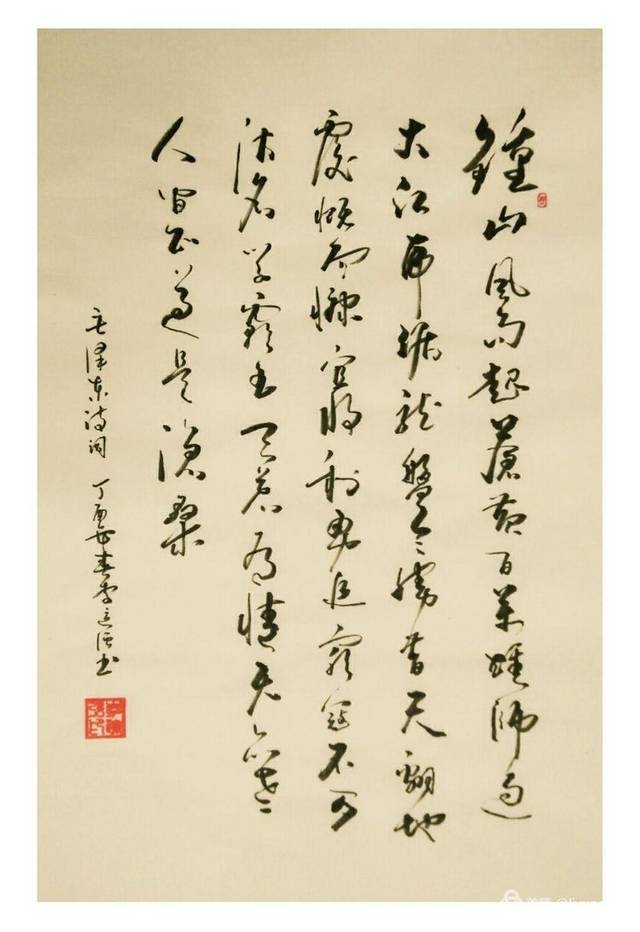 鍾山風雨起蒼黄百萬雄师過
大江虎踞龙盤今勝昔天翻地
覆慨而慷宜将剩勇追窮寇不可
沽名学霸王天若有情天亦老
人间正道是滄桑
毛泽东诗词 丁酉春李书